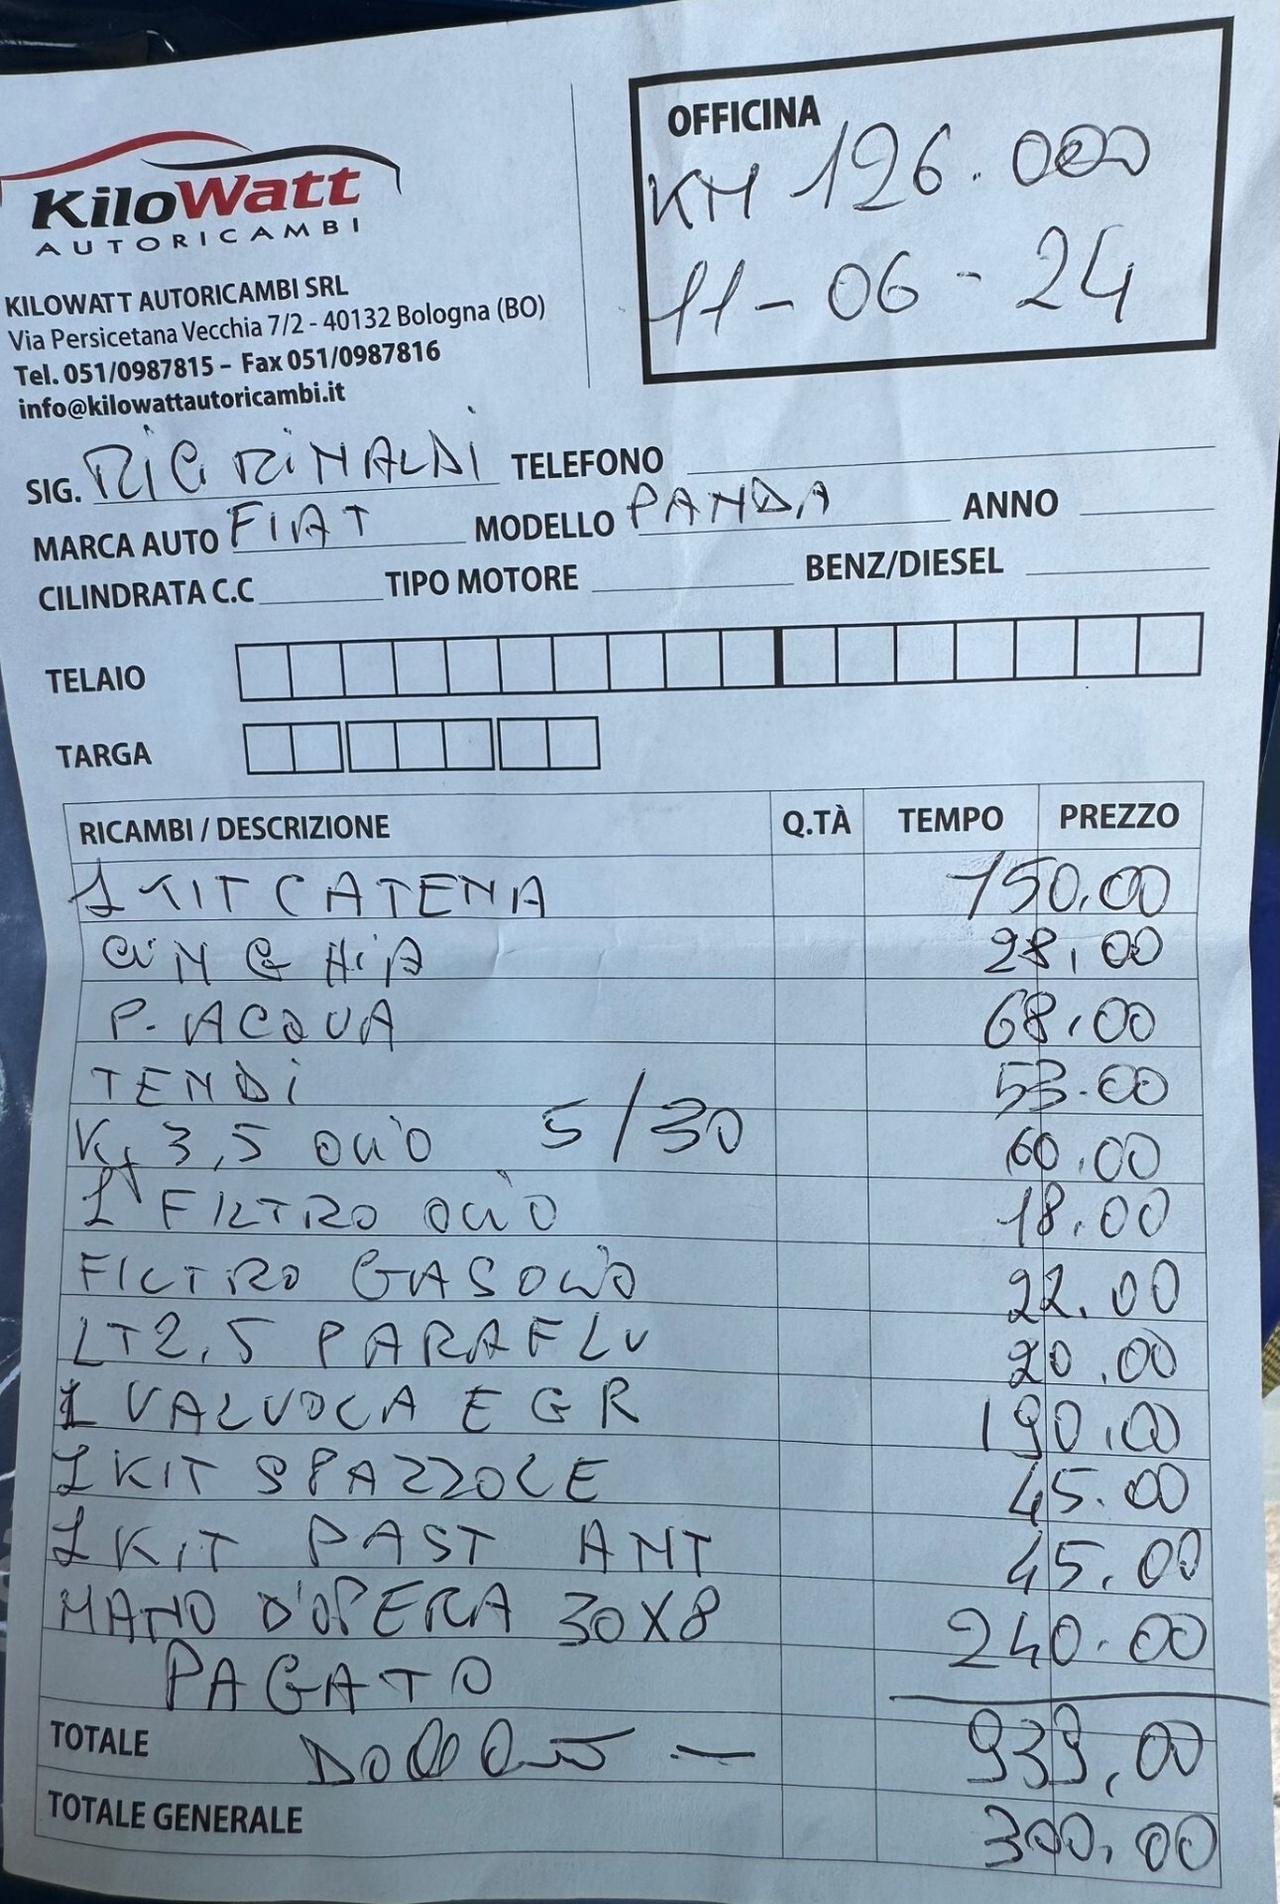 KiloWatt
AUTORICAMBI
KILOWATT AUTORICAMBI SRL
Via Persicetana Vecchia 7/2 - 40132 Bologna (BO)
Tel. 051/0987815 – Fax 051/0987816
info@kilowattautoricambi.it
OFFICINA
KM 126.000
11-06-24
SIG. RIG RINALDI TELEFONO
MARCA AUTO FIAT MODELLO PANDA ANNO
CILINDRATA C.C TIPO MOTORE BENZ/DIESEL
TELAIO
TARGA
RICAMBI / DESCRIZIONE Q.TÀ TEMPO PREZZO
1 KIT CATENA 150,00
CINGHIA 28,00
P. ACQUA 68,00
TENDI 53.00
K, 3,5 OLIO 5/30 60,00
1 FILTRO OLIO 18,00
FILTRO GASOLIO 22,00
LT 2,5 PARAFLU 20,00
1 VALVOLA EGR 190,00
1 KIT SPAZZOLE 45.00
1 KIT PAST ANT 45,00
MANO D'OPERA 30X8 240.00
PAGATO
TOTALE 939,00
TOTALE GENERALE 300,00